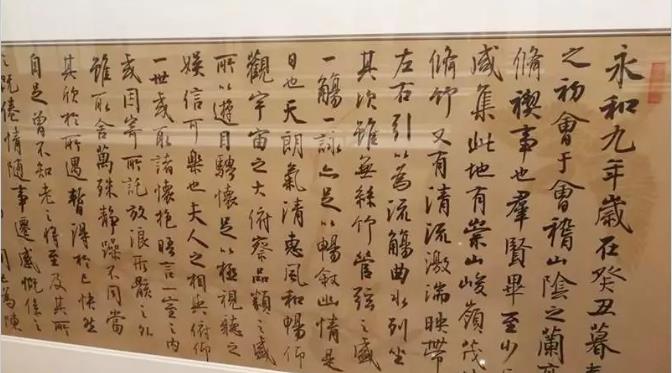 永和九年歲在癸丑暮春
之初會于會稽山陰之蘭亭
脩禊事也羣賢畢至少
咸集此地有崇山峻嶺茂
脩竹又有清流激湍映帶
左右引以為流觴曲水列坐
其次雖無絲竹管弦之盛
一觴一詠亦足以暢敘幽情是
日也天朗氣清惠風和暢仰
觀宇宙之大俯察品類之盛
所以遊目騁懷足以極視聽之
娛信可樂也夫人之相與俯仰
一世或取諸懷抱晤言一室之內
或因寄所託放浪形骸之外
雖取舍萬殊靜躁不同當
其欣於所遇暫得於己快然
自足曾不知老之將至及其所
之既倦情隨事遷感慨係之
為陳